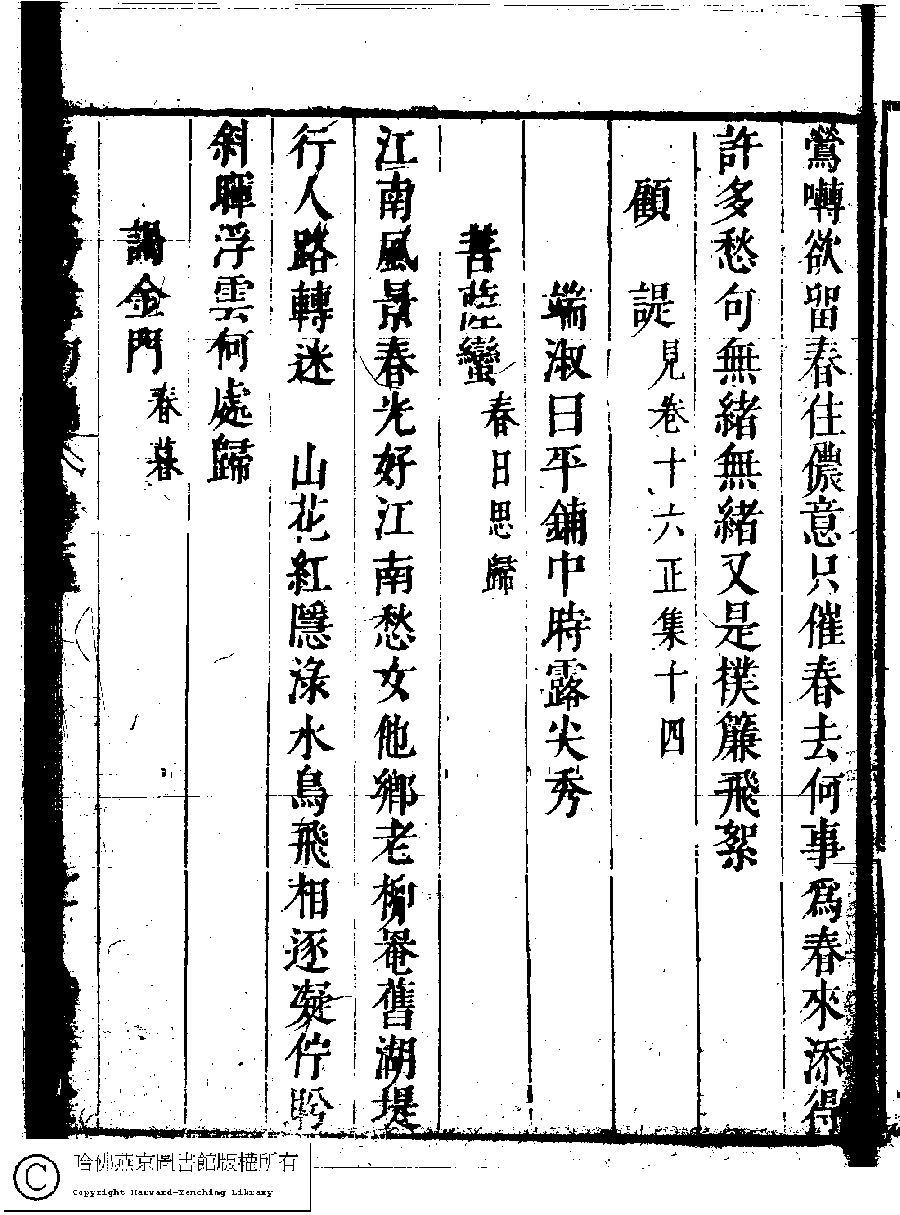 鶯囀欲留春住儂意只催春去何事爲春來添得
許多愁句無緒無緒又是撲簾飛絮
顧諟見卷十六正集十四
端淑曰平鋪中時露尖秀
菩薩蠻春日思歸
江南風景春光好江南愁女他鄉老柳罨舊湖堤
行人路轉迷　山花紅隱淥水鳥飛相逐凝佇盻
斜暉浮雲何處歸
謁金門春暮
哈佛燕京圖書館版權所有
Copyright Harvard-Yenching Library